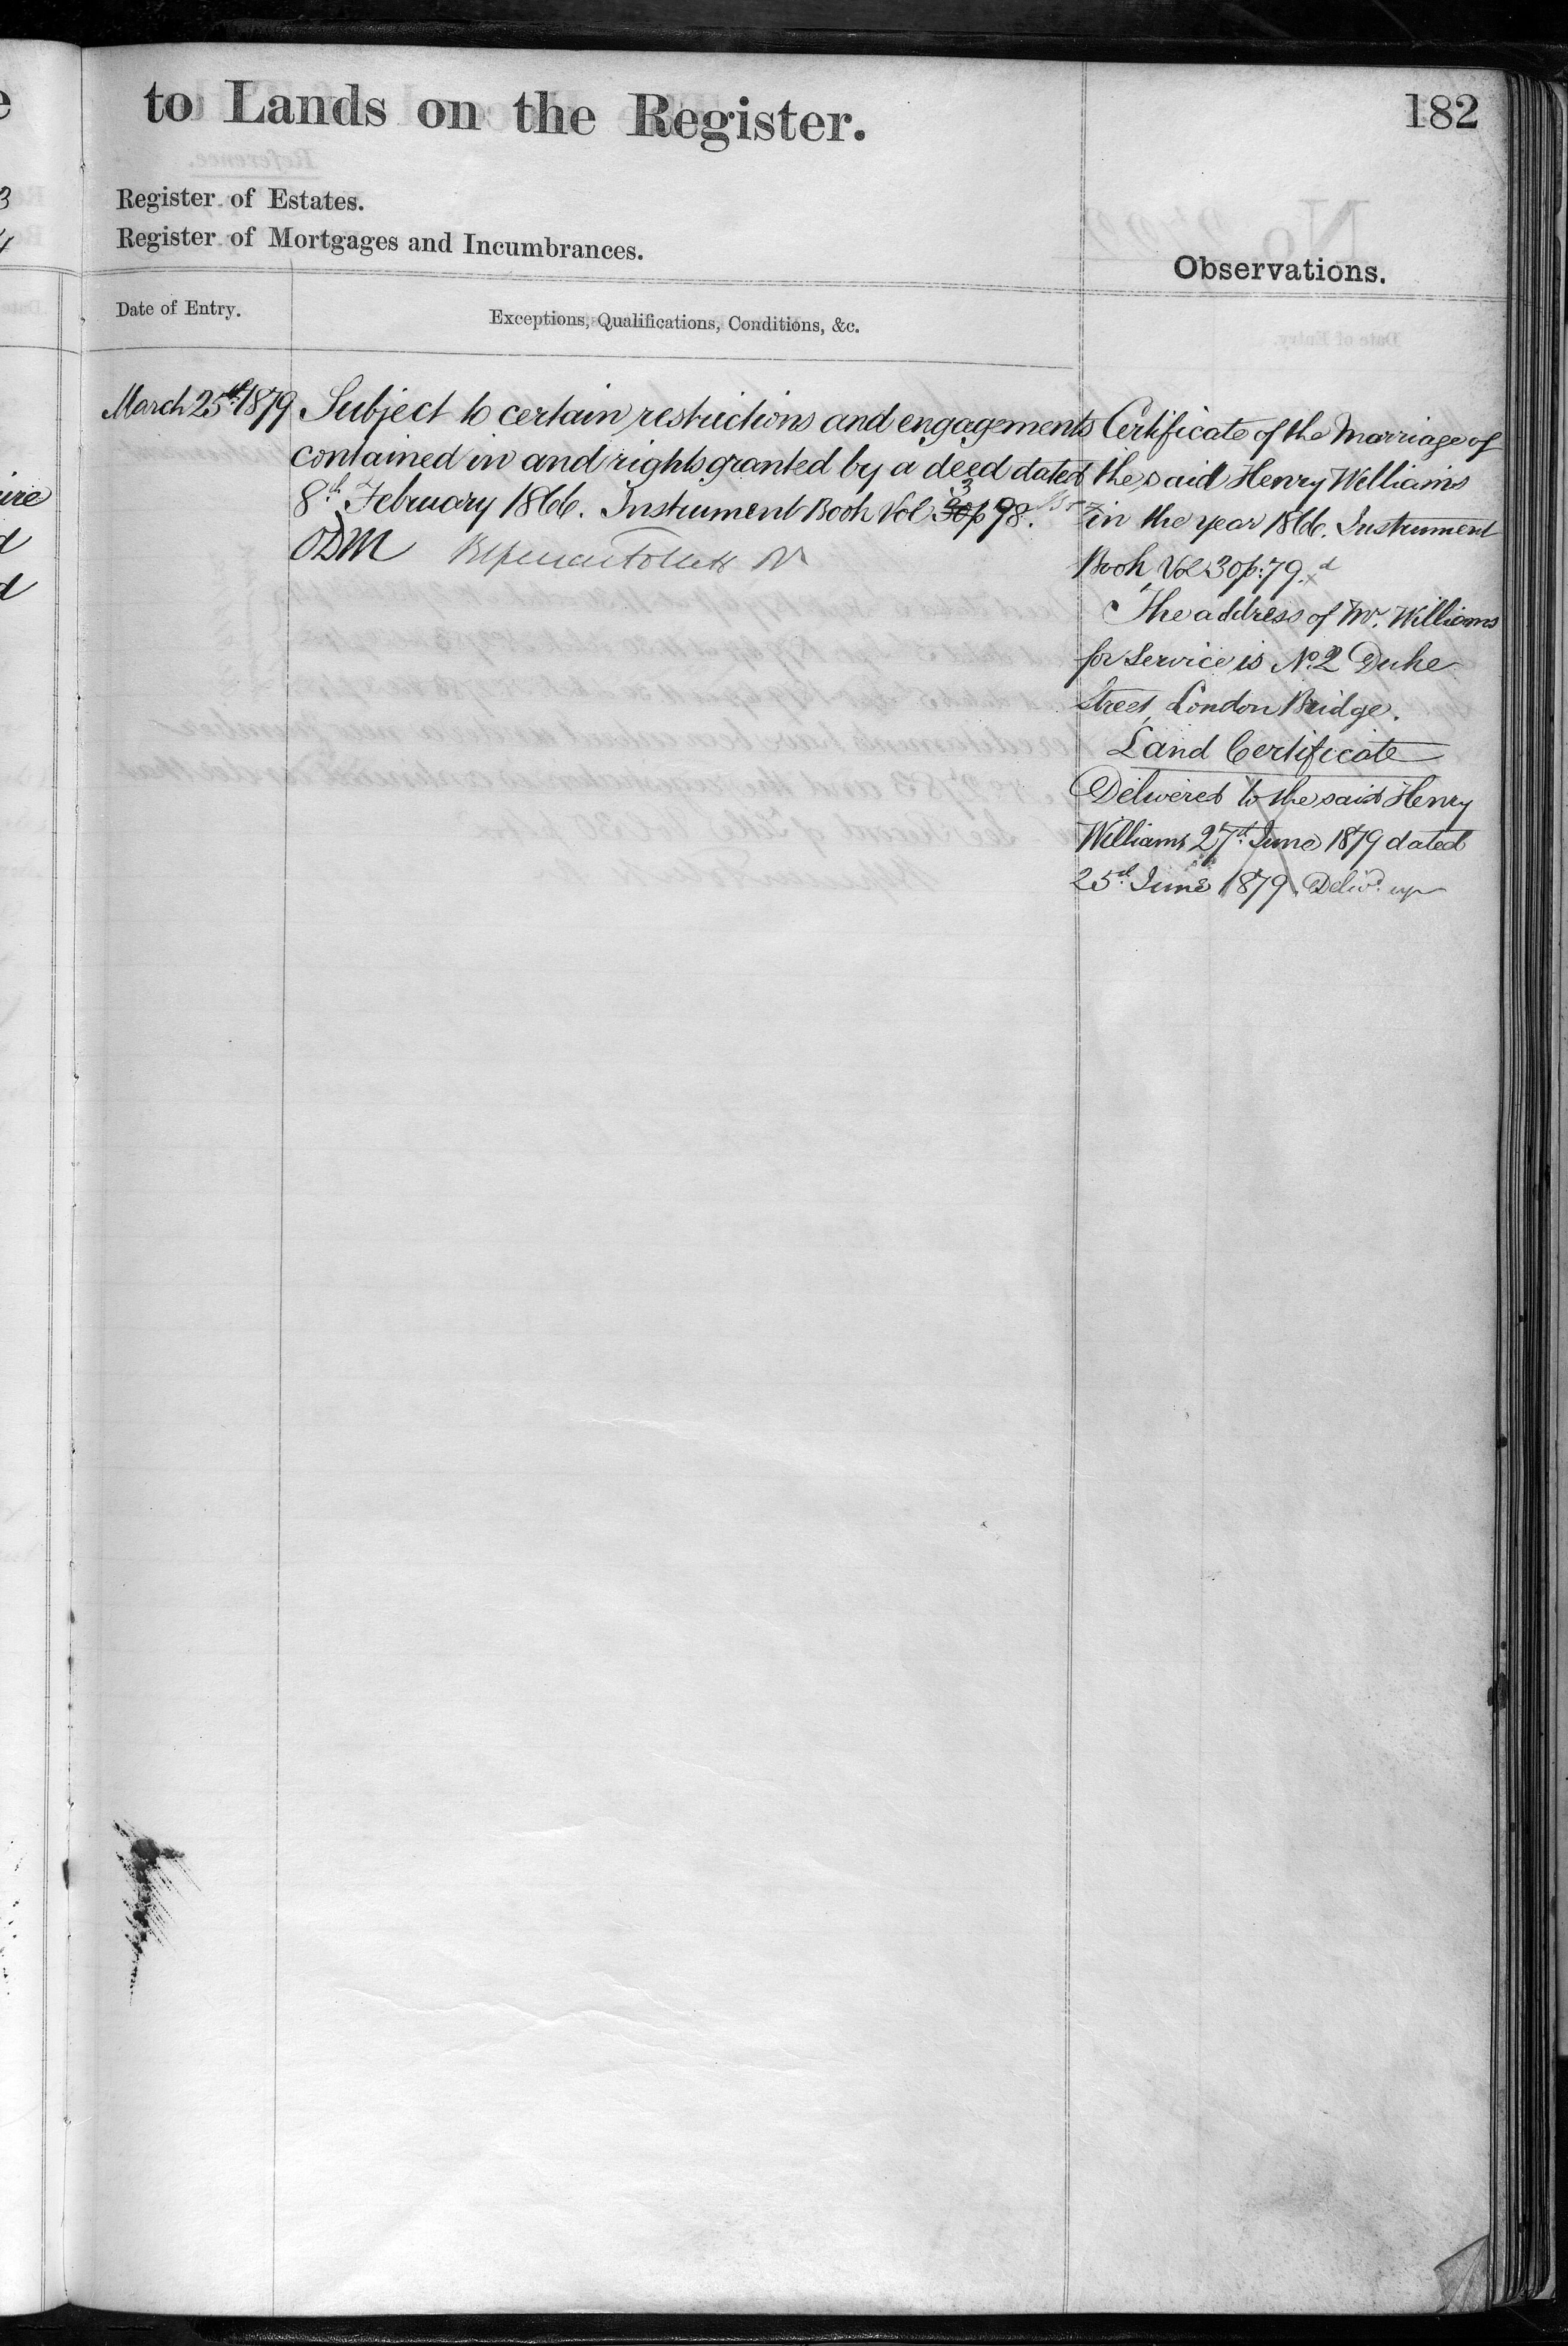 to Lands on the Register.
182
Register of Estates.
Register of Mortgages and Incumbrances.
Observations.
Date of Entry.
Exceptions, Qualifications, Conditions, &c.
March 25th 1879
Subject to certain restrictions and engagements
contained in and rights granted by a deed dated
8th February 1866. Instrument Book Vol 3 30 p 98.
ODM
Certificate of the Marriage of
the said Henry Williams
in the year 1866. Instrument
Book Vol 30 p: 79.
The address of Mr. Williams
for Service is No. 2 Duke
Street London Bridge.
Land Certificate
Delivered to the said Henry
Williams 27th June 1879 dated
25th June 1879. Delivd. up